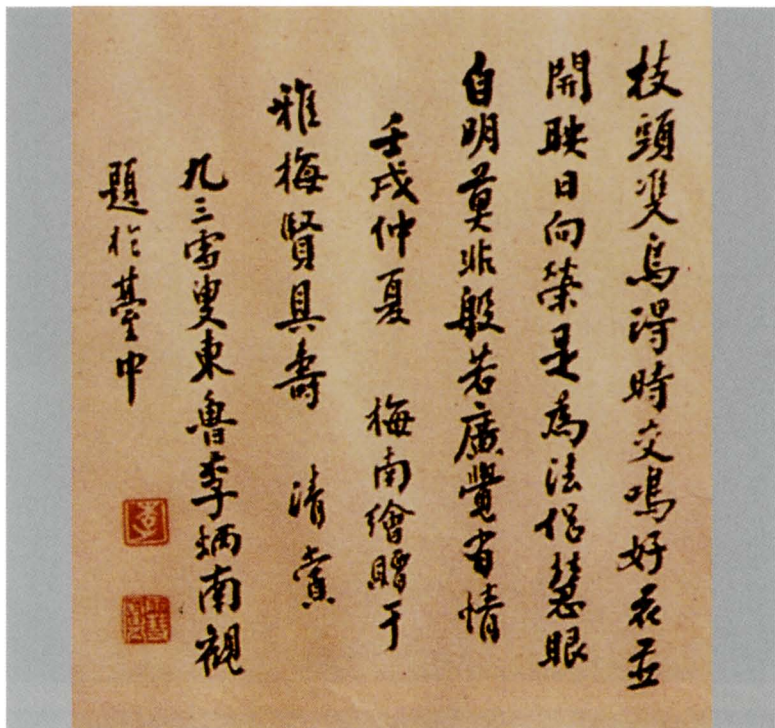 枝頭雙鳥得時交鳴好花並
開映日向榮是為法侶慧眼
自明莫非般若廣覺有情
壬戌仲夏 梅南繪贈于
雅梅賢具壽 清賞
九三雪叟東魯李炳南觀
題於臺中